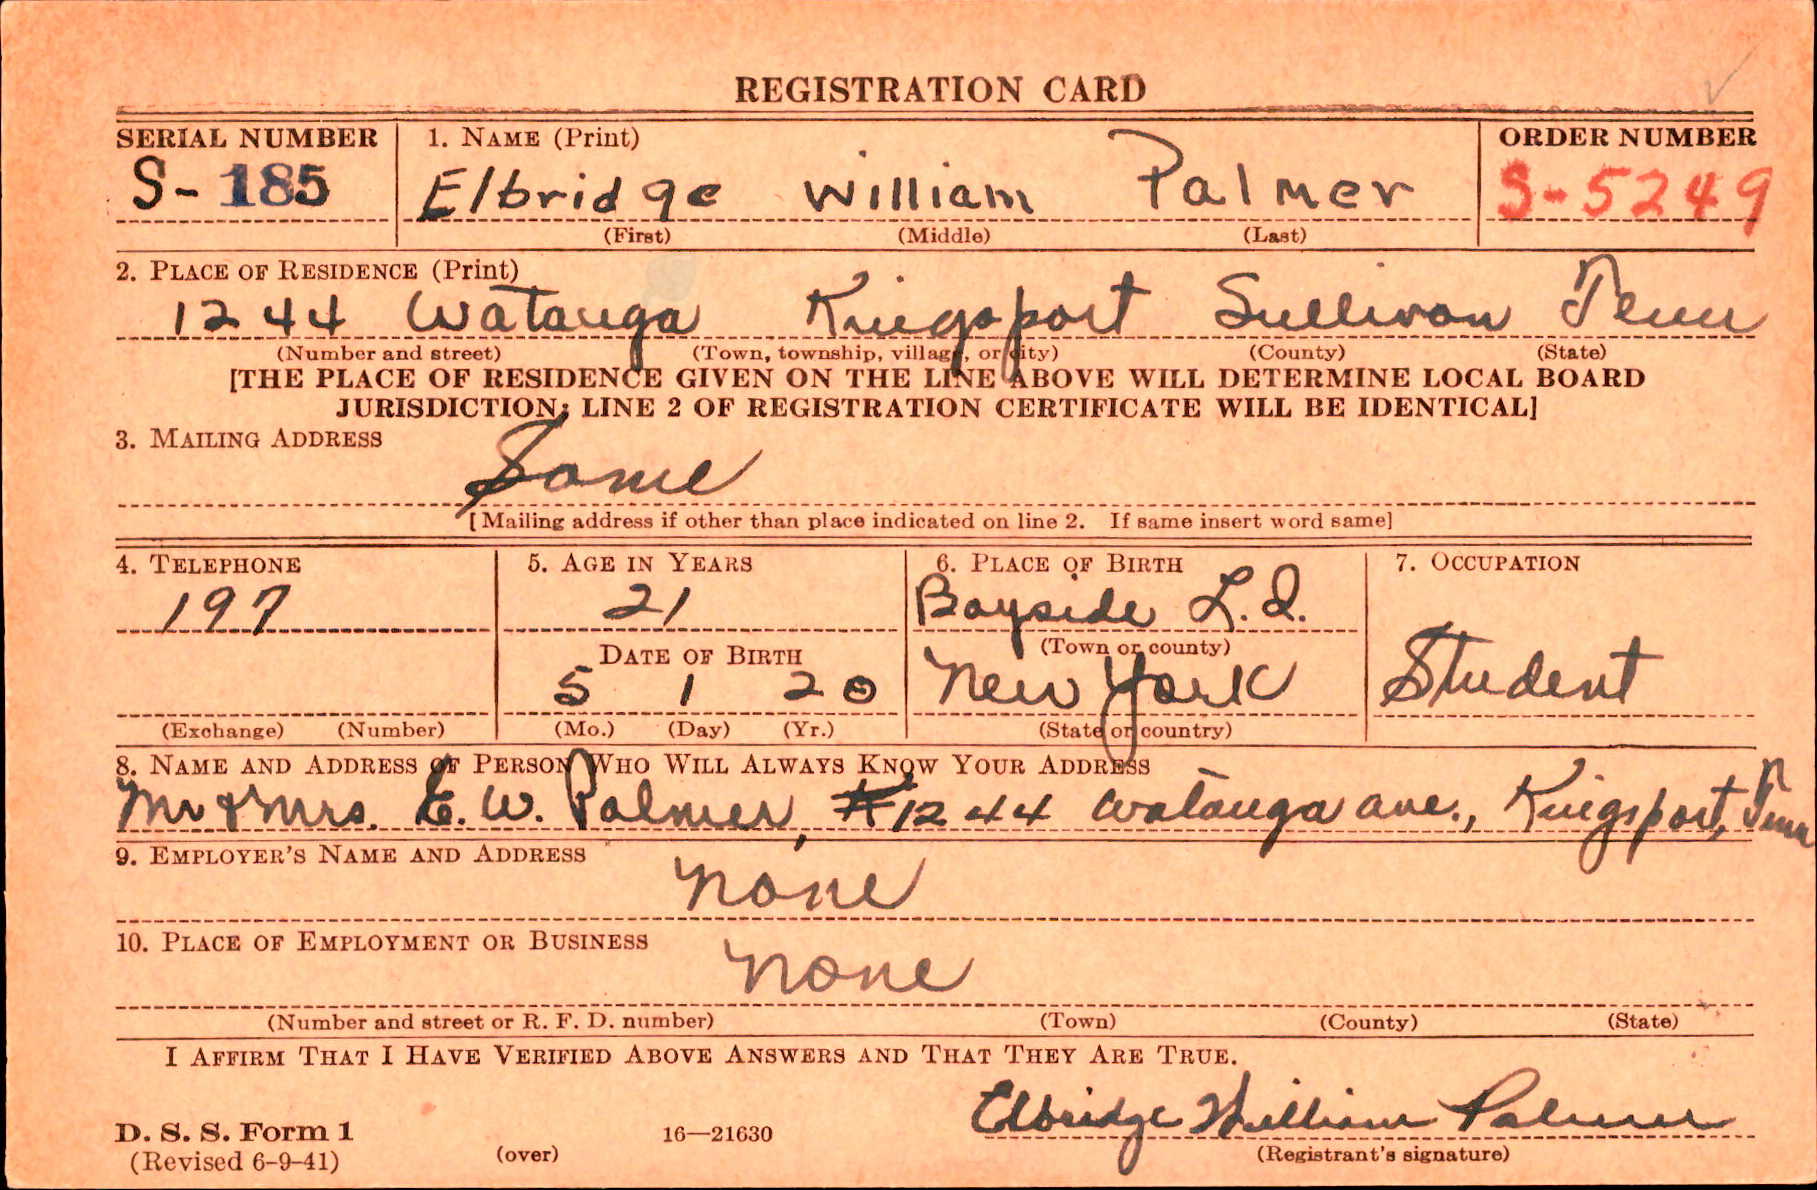 REGISTRATION CARD
SERIAL NUMBER 1. NAME (Print) ORDER NUMBER
S-185 Elbridge William Palmer S-5249
(First) (Middle) (Last)
2. PLACE OF RESIDENCE (Print)
1244 Watauga Kingsport Sullivan Tenn
(Number and street) (Town, township, village, or city) (County) (State)
[THE PLACE OF RESIDENCE GIVEN ON THE LINE ABOVE WILL DETERMINE LOCAL BOARD
JURISDICTION; LINE 2 OF REGISTRATION CERTIFICATE WILL BE IDENTICAL]
3. MAILING ADDRESS
Same
[Mailing address if other than place indicated on line 2. If same insert word same]
4. TELEPHONE 5. AGE IN YEARS 6. PLACE OF BIRTH 7. OCCUPATION
197 21 Bayside L.I.
DATE OF BIRTH (Town or county)
5 1 20 New York Student
(Exchange) (Number) (Mo.) (Day) (Yr.) (State or country)
8. NAME AND ADDRESS OF PERSON WHO WILL ALWAYS KNOW YOUR ADDRESS
Mr & Mrs. E. W. Palmer, #1244 Watauga ave., Kingsport, Tenn
9. EMPLOYER'S NAME AND ADDRESS
None
10. PLACE OF EMPLOYMENT OR BUSINESS
None
(Number and street or R. F. D. number) (Town) (County) (State)
I AFFIRM THAT I HAVE VERIFIED ABOVE ANSWERS AND THAT THEY ARE TRUE.
Elbridge William Palmer
D. S. S. Form 1 16—21630
(Revised 6-9-41) (over) (Registrant's signature)